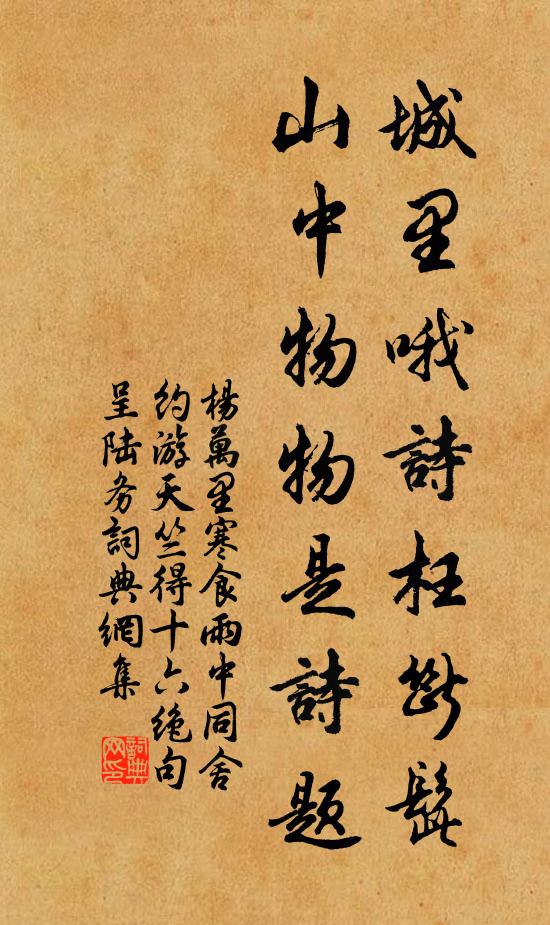 城里哦詩枉斷髭
山中物物是詩题
楊萬里寒食雨中同舍
约游天竺得十六绝句
呈陆务詞典網集
詞典网印